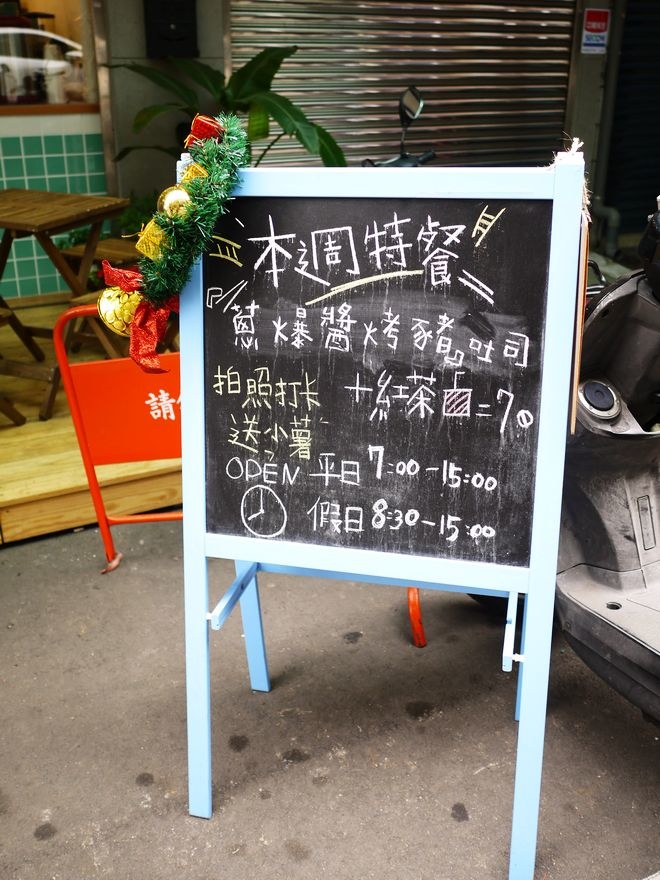 本週特餐
蔥爆醬烤豬吐司
拍照打卡
送小薯
+紅茶=70
OPEN 平日 7:00-15:00
假日 8:30-15:00
請